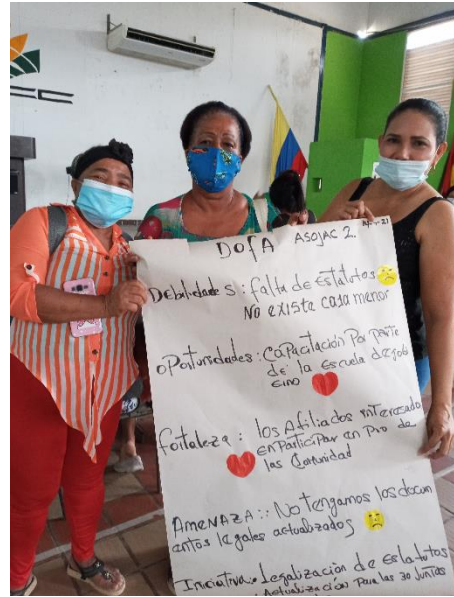 DOFA ASOJAC 2.
Debilidades: falta de Estatutos
No existe caja menor
oPortunidades: CaPacitación Por parte
de la Escuela de
fortaleza: los Afiliados interesado
en Participar en Pro de
las Comunidad
AMENAZA:: No tengamos los docum
entos legales actualizados
Iniciativa. Legalización de Estatutos
Actualización Para las 30 Juntas